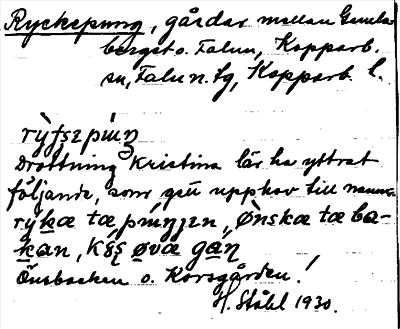 Ryckepung, gårdar mellan Gamla
berget o. Falun, Kopparb.
sn, Falun. tg, Kopparb. l.
rỳʄʂɛpiuŋ
Drottning Kristina lär ha yttrat
följande, som gett upphov till namn.
rýkæ tæ píuŋŋen, Önskæ tæ ba-
kan, k øvæ gaɳ
Önsbacken o. Korsgården!
H. Ståhl 1930.